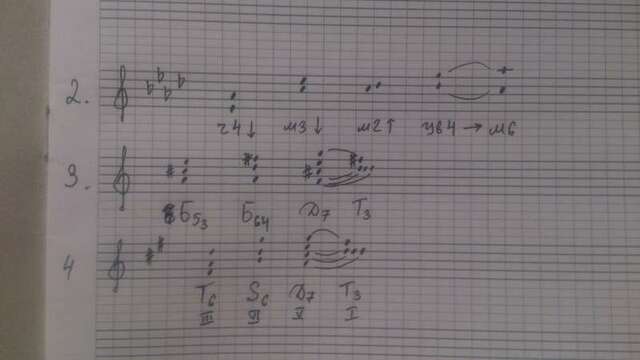 2. ч4↓ м3↓ м2↑ ув4 → м6
3. Б53 Б64 Д7 Т3
4 Т6 S6 Д7 Т3
III VI V I